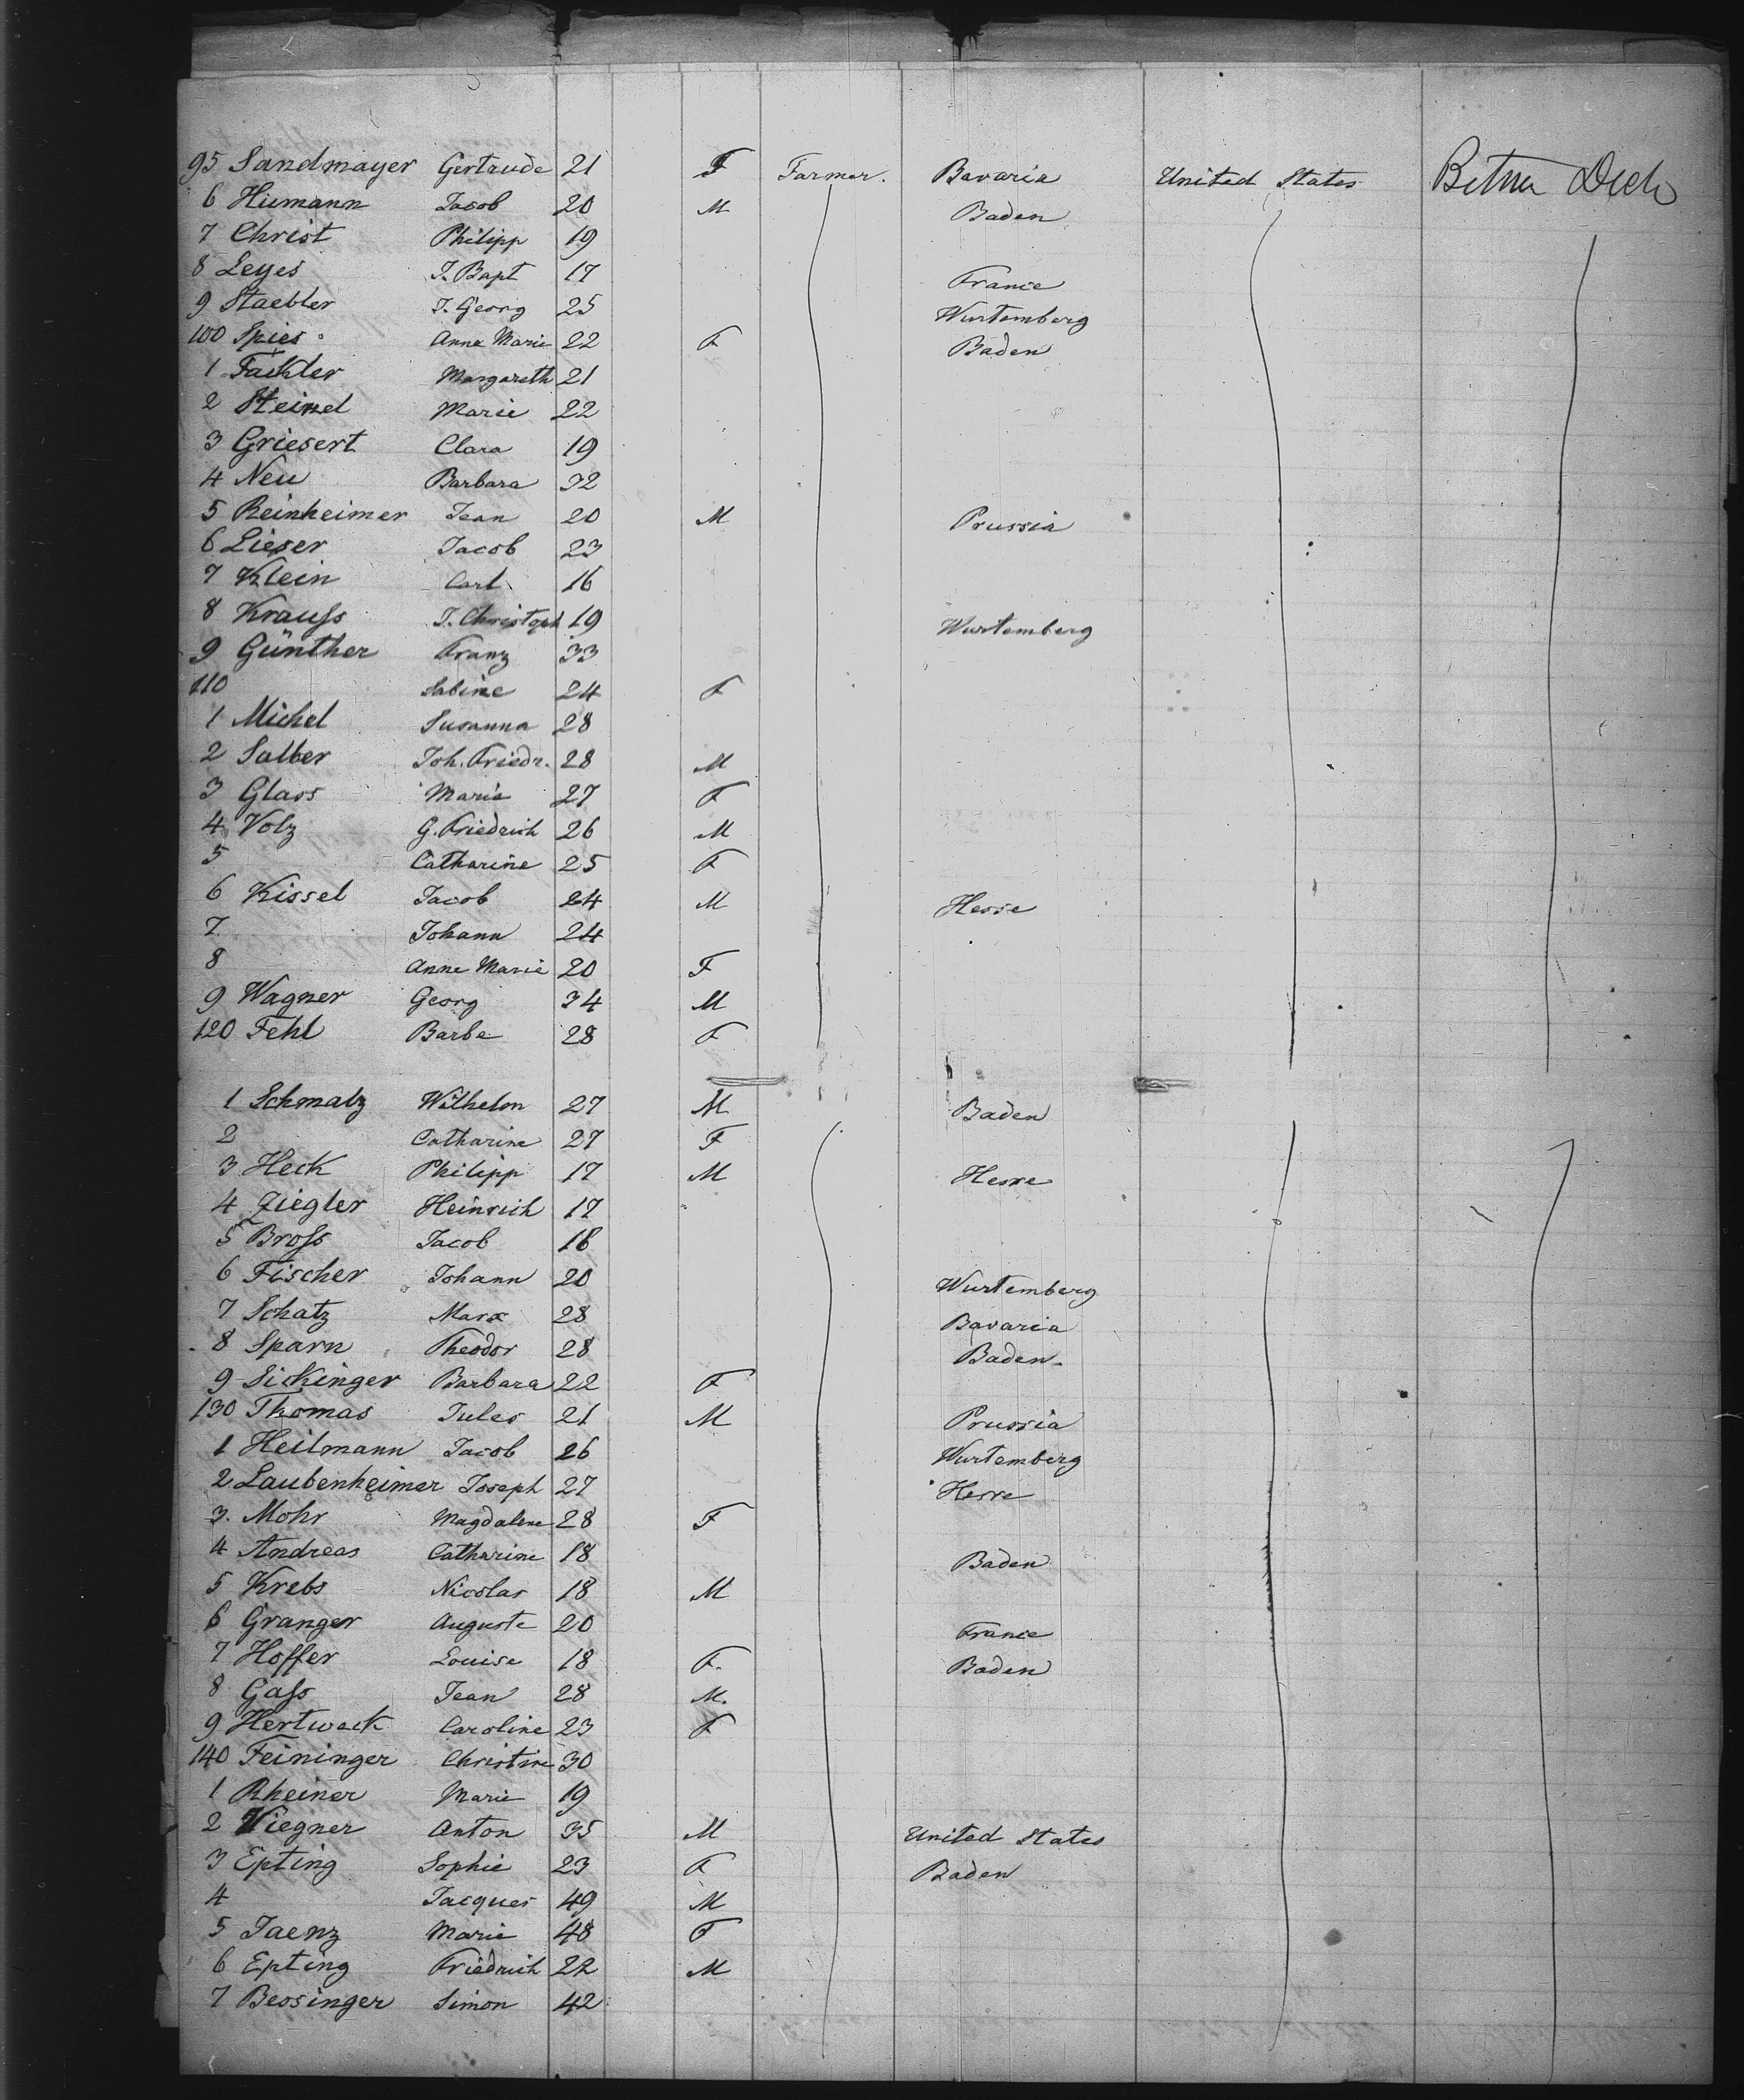 95 Sandmayer Gertrude 21 F Farmer. Bavaria United States Betwn Deck
6 Humann Jacob 20 M Baden
7 Christ Philipp 19
8 Leyes J. Bapt 17 France
9 Staebler J. Georg 25 Wurtemberg
100 Spies Anne Marie 22 F Baden
1 Faihler Margareth 21
2 Steinel Marie 22
3 Griesert Clara 19
4 Neu Barbara 32
5 Reinheimer Jean 20 M Prussia
6 Lieser Jacob 23
7 Klein Carl 16
8 Krauſs J. Christoph 19 Wurtemberg
9 Günther Franz 33
110 Sabine 24 F
1 Michel Susanna 28
2 Salber Joh. Friedr. 28 M
3 Glass Marie 27 F
4 Volz G. Friedrich 26 M
5 Catharine 25 F
6 Kissel Jacob 24 M Hesse
7 Johann 24
8 Anne Marie 20 F
9 Wagner Georg 34 M
120 Fehl Barbe 28 F
1 Schmalz Wilhelm 27 M Baden
2 Catharine 27 F
3 Heck Philipp 17 M Hesse
4 Ziegler Heinrich 17
5 Broſs Jacob 18
6 Fischer Johann 20 Wurtemberg
7 Schatz Marx 28 Bavaria
8 Sparn Theodor 28 Baden
9 Sickinger Barbara 22 F
130 Thomas Jules 21 M Prussia
1 Heilmann Jacob 26 Wurtemberg
2 Laubenheimer Joseph 27 Hesse
3. Mohr Magdalene 28 F
4 Andreas Catharine 18 Baden
5 Krebs Nicolas 18 M
6 Granger Auguste 20 France
7 Hoffer Louise 18 F. Baden
8 Gaſs Jean 28 M.
9 Hertweck Caroline 23 F
140 Feininger Christine 30
1 Rheiner Marie 19
2 Wiegner Anton 35 M United States
3 Epting Sophie 23 F Baden
4 Jacques 49 M
5 Jaenz Marie 48 F
6 Epting Friedrich 22 M
7 Bessinger Simon 42